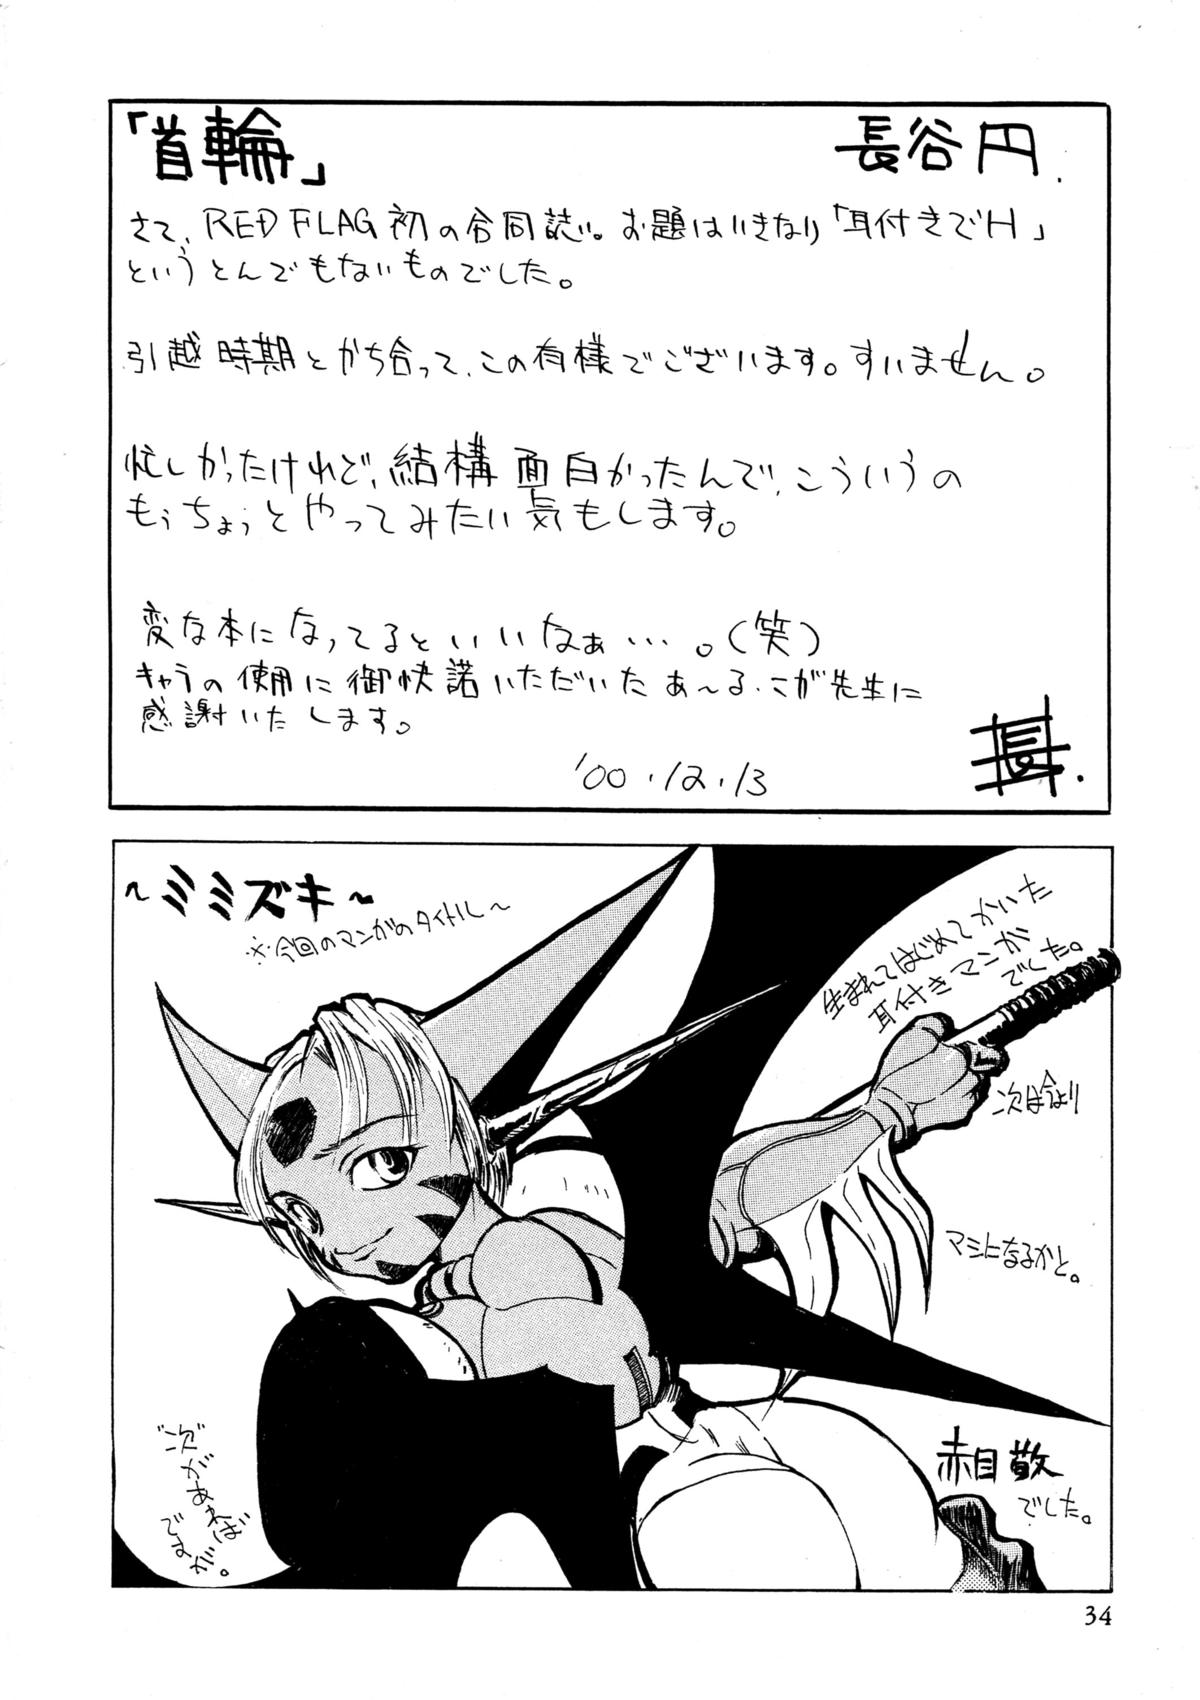 「首輪」
長谷円.
さて、RED FLAG初の合同誌。お題はいきなり「耳付きでH」
というとんでもないものでした。
引越時期とかち合って、この有様でございます。すいません。
忙しかったけれど、結構面白かったんで、こういうの
もぅちょぅとやってみたい気もします。
変な本になってるといいなぁ…。(笑)
キャラの使用に御快諾いただいたあ〜る・こが先生に
感謝いたします。
'00.12.13
長.
~ミミズキ~
※今回のマンガのタイトル~
生まれてはじめてかいた
耳付きマンガ
でした。
次は今より
マシになるかと。
"次"が
あれば
ですが。
赤目敬
でした。
34